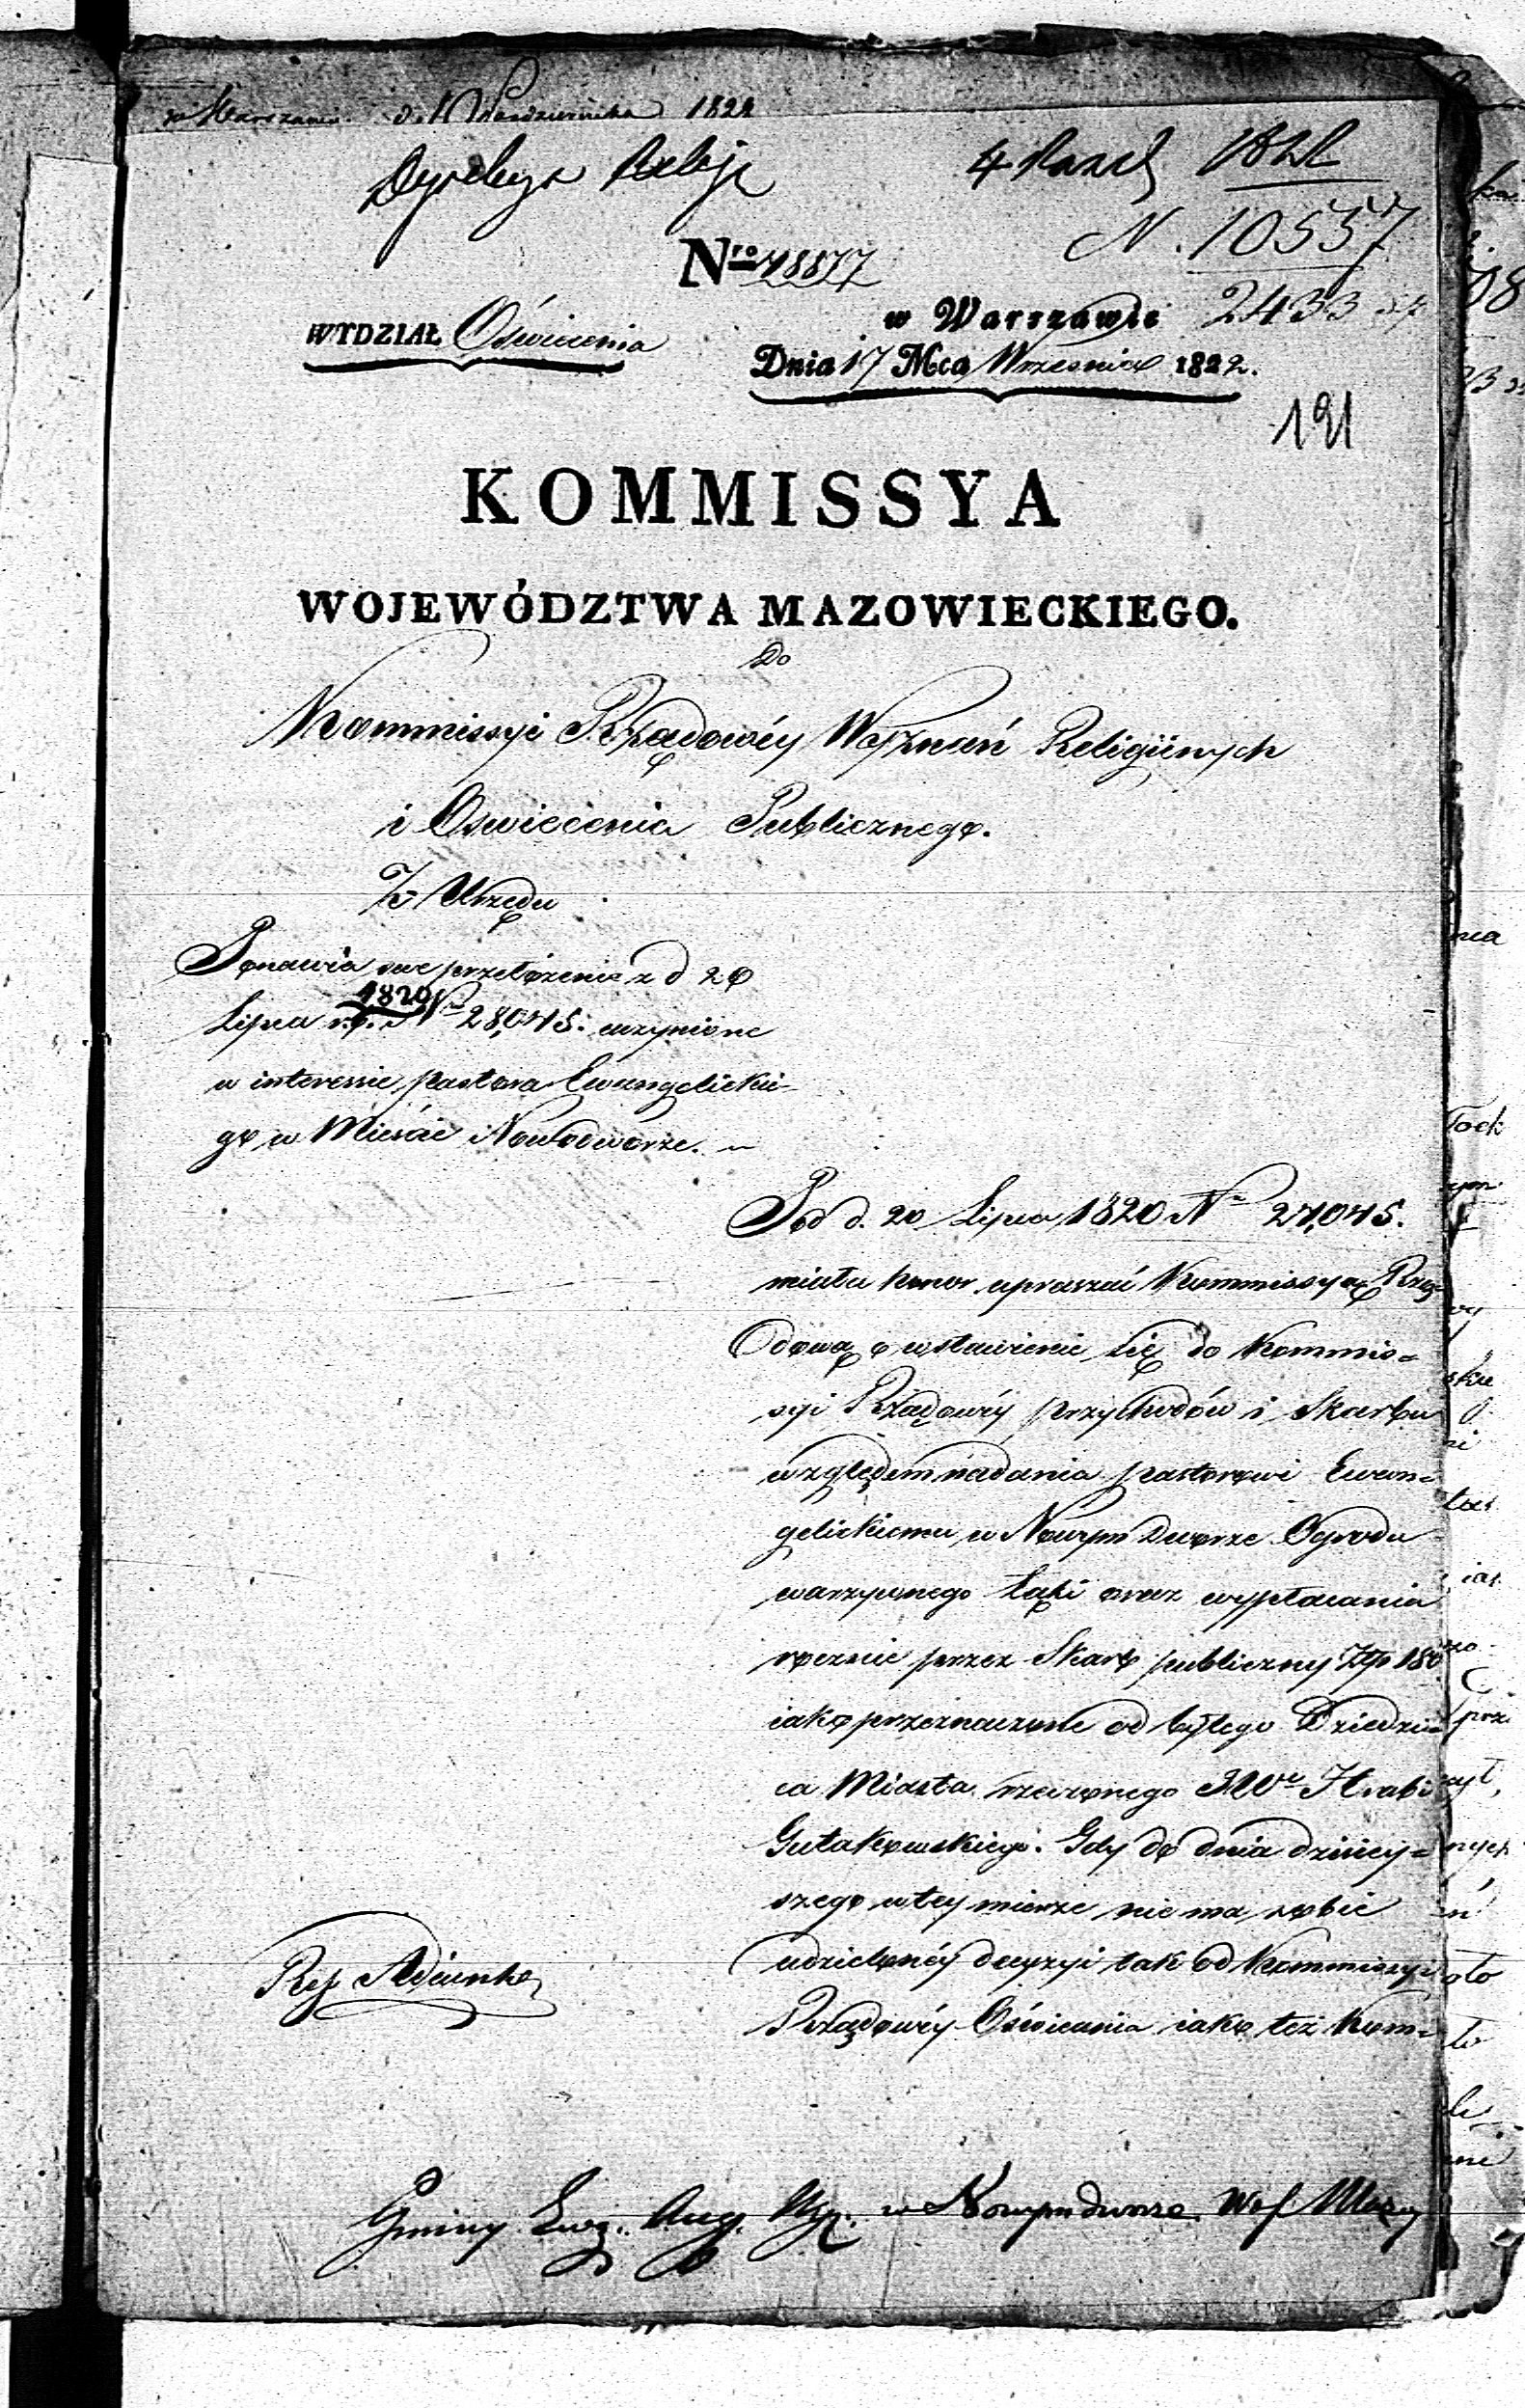 w Warszawie d. Października 1822
4 1822
N. 10557
Nro 48877
2433
WYDZIAŁ Oświecenia
w Warszawie
Dnia 17 Mca Wrzesnia 1822.
191
KOMMISSYA
WOJEWÓDZTWA MAZOWIECKIEGO.
Do
Kommissyi Rządowéy Wyznań Religiinych
i Oswiecenia Publicznego.
Z Urzędu
Ponawia swe przełożenie z d 20
Lipca 1820 Nro 28,045. uczynione
w interessie pastora Ewangelickie-
go w Mieście Nowodworze.
Pod d. 20 Lipca 1820 Nro 27,045.
miała honor upraszać Kommissyą Rzą-
dową o wstawienie się do Kommis=
syi Rządowéy przychodów i Skarbu
względem nadania pastorowi Ewan=
gelickiemu w Nowym Dworze Ogrodu
warzywnego Łąki oraz wypłacania
rocznie przez Skarb publiczny Złp 180
iako przeznaczone od byłego Dziedzi=
ca Miasta rzeczonego JWo Hrabi
Gutakowskiego. Gdy do dnia dzisiey=
szego w tey mierze nie ma sobie
udzielonéy decyzyi tak od Kommissyi
Rządowéy Oświecenia iako też Kom=
Ref Adiunkt
Gminy Ewg. Aug. w Nowymdworze Woj Mazow